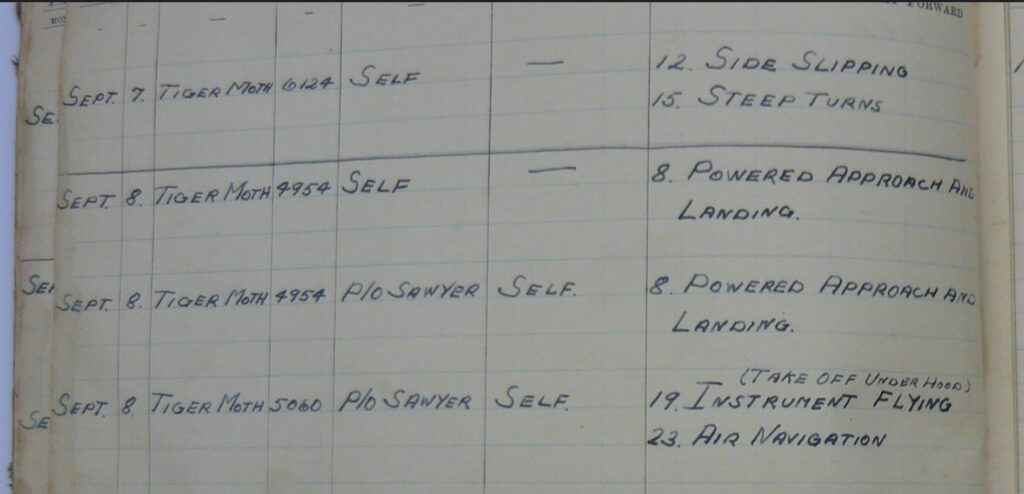 FORWARD
MO
SEPT. 7. TIGER MOTH 6124 SELF — 12. SIDE SLIPPING
15. STEEP TURNS
SE
SEPT. 8. TIGER MOTH 4954 SELF — 8. POWERED APPROACH AND
LANDING.
SE
SEPT. 8. TIGER MOTH 4954 P/O SAWYER SELF. 8. POWERED APPROACH AND
LANDING.
(TAKE OFF UNDER HOOD)
SEPT. 8. TIGER MOTH 5060 P/O SAWYER SELF. 19. INSTRUMENT FLYING
SE
23. AIR NAVIGATION